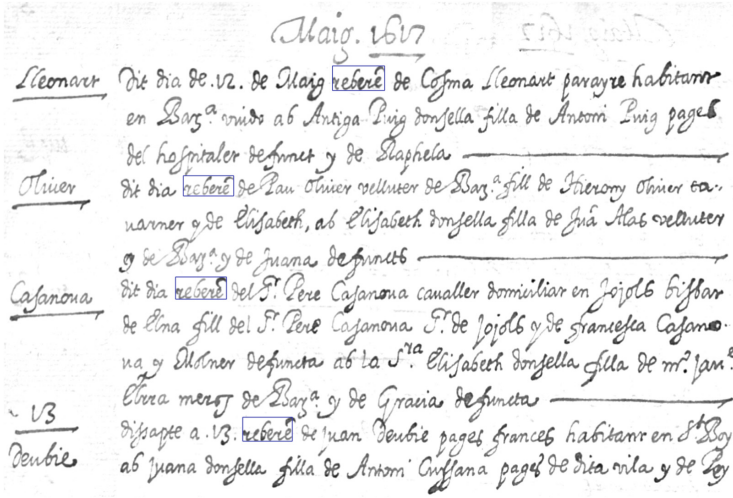 Maig. 1617
Lleonart Dit dia de .12. de Maig reberẽ de Cosma Lleonart parayre habitant
en Barᵃ viudo ab Antiga Puig donsella filla de Antoni Puig pages
del hospitalet defunct y de Raphela
Oliuer dit dia reberẽ de Pau Oliuer velluter de Barᵃ fill de Hierony Oliuer ta-
uarner y de Elisabeth, ab Elisabeth donsella filla de Juã Alas velluter
y de Barᵃ y de Juana defuncts
Casanoua dit dia reberẽ del Sʳ. Pere Casanoua caualler domiciliat en Jojols bisbat
de Elna fill del Sʳ. Pere Casanoua Sʳ. de Jojols y de francesca Casano-
ua y Molner defuncta ab la Sʳᵃ. Elisabeth donsella filla de mʳ.
merˢ de Barᵃ. y de Gracia defuncta
13 dissapte a .13. reberẽ de Juan Deubie pages frances habitant en Sᵗ Boy
Deubie ab Juana donsella filla de Antoni Cussana pages de dita vila y de